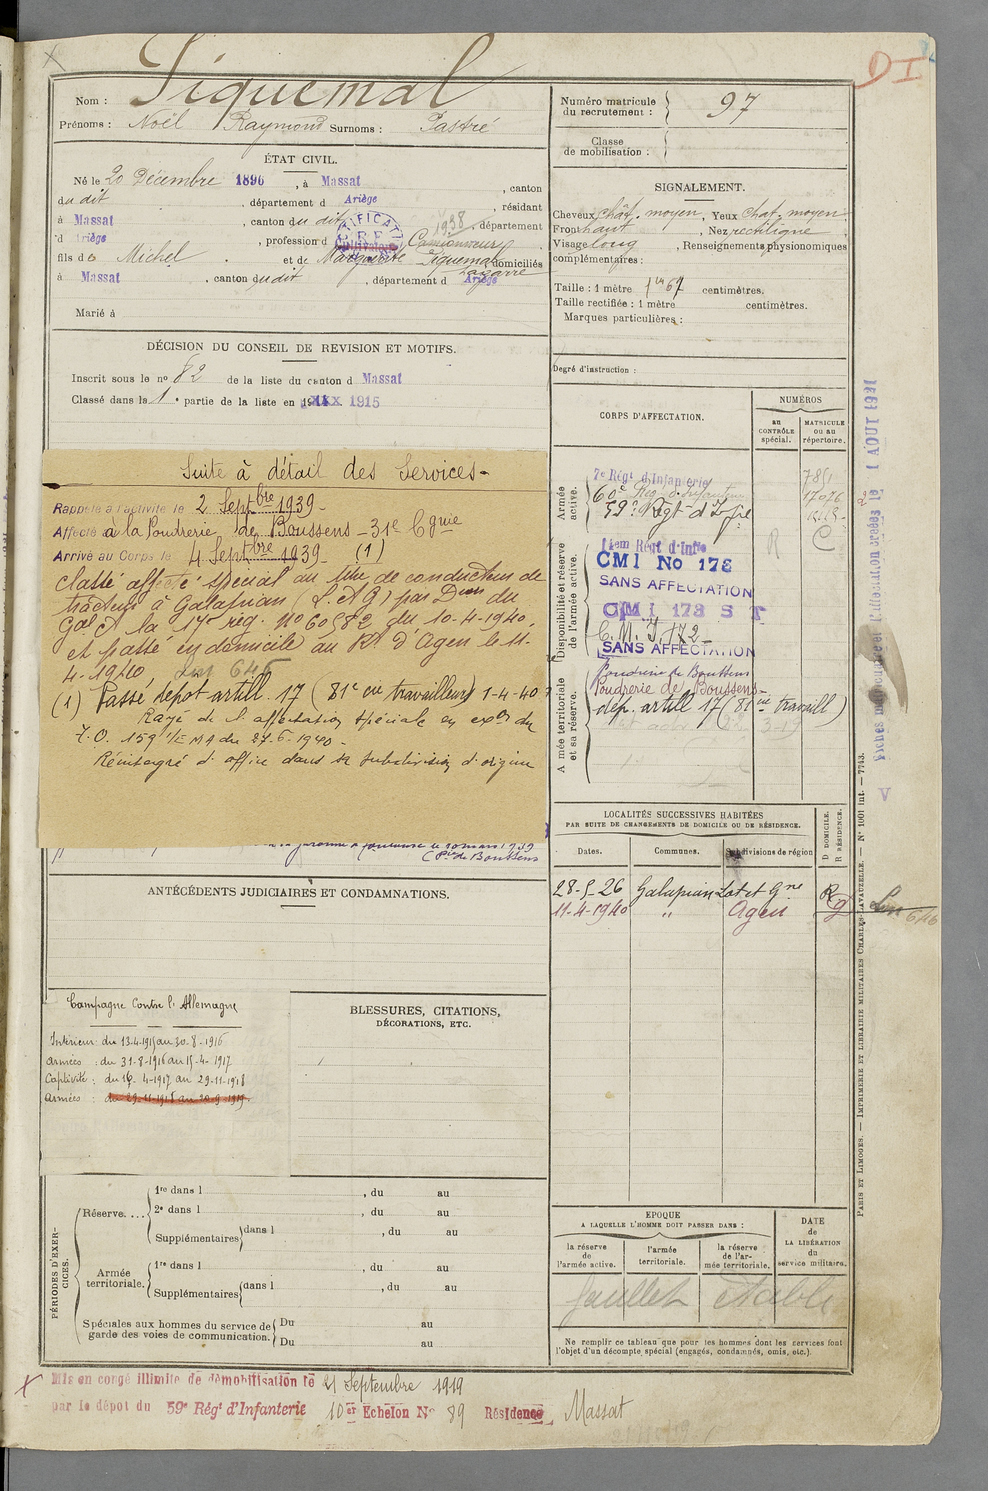 DI
Nom : Piquemal
Prénoms : Noël Raymond Surnoms : Pastré
ÉTAT CIVIL.
Né le 20 Décembre 1896, à Massat, canton
du dit, département d Ariège, résidant
à Massat, canton du dit 1938, département
d Ariège, profession d Cultivateur Camionneur
fils de Michel et de Marguerite Piquemal, domiciliés
Lagarre
à Massat, canton du dit, département d Ariège
Marié à
DÉCISION DU CONSEIL DE REVISION ET MOTIFS.
Inscrit sous le no 82 de la liste du canton d Massat
Classé dans la 1e partie de la liste en 1915
Suite à détail des Services-
Rappelé à l'activité le 2 Septbre 1939-
Affecté à la Poudrerie de Boussens - 31e Cgnie
Arrivé au Corps le 4 Septbre 1939- (1)
Classé affecté spécial au titre de conducteur de
tracteur à Galapian, (L. et G) par Dson du
Gal Ct la 17e rég. No 60582 du 10-4-1940.
et passé en domicile au Rt d'Agen le 11-
4-1940 646
(1) Passé dépot artill. 17 (81e cie travailleurs) 1-4-40
Rayé de l'affectation spéciale en exon du
T.O. 159 1/EMA du 27-6-1940-
Réintégré d'office dans sa subdivision d'origine
(Pie de Boussens
ANTÉCÉDENTS JUDICIAIRES ET CONDAMNATIONS.
Campagne Contre l'Allemagne
Intérieur: du 13-4-1915 au 30-8-1916
Armées : du 31-8-1916 au 15-4-1917
Captivité : du 16-4-1917 au 29-11-1918
Armées : du 29-11-1918 au 20-9-1919
BLESSURES, CITATIONS,
DÉCORATIONS, ETC.
PÉRIODES D'EXERCICES.
Réserve....
1re dans l , du au
2e dans l , du au
Supplémentaires dans l , du au
Armée territoriale.
1re dans l , du au
Supplémentaires dans l , du au
Spéciales aux hommes du service de Du au
garde des voies de communication. Du au
Mis en congé illimité de démobilisation le 21 Septembre 1919
par le dépôt du 59e Régt d'Infanterie 10er Echelon No 89 Résidence Massat
Numéro matricule
du recrutement : 97
Classe
de mobilisation :
SIGNALEMENT.
Cheveux chât. moyen, Yeux chat. moyen
Front haut, Nez rectiligne
Visage long, Renseignements physionomiques
complémentaires :
Taille : 1 mètre 1m 67 centimètres.
Taille rectifiée : 1 mètre centimètres.
Marques particulières :
Degré d'instruction :
CORPS D'AFFECTATION.
NUMÉROS
au CONTRÔLE spécial.
MATRICULE ou au répertoire.
Armée active.
7e Régt d'Infanterie 7851
60e Rég. d'Infanterie 17026
59e Régt d'Infie
Disponibilité et réserve de l'armée active.
14em Régt d'Infie
CMI No 178
SANS AFFECTATION
CMI 173 S T
C.M.I. 172-
SANS AFFECTATION
R
C
Armée territoriale et sa réserve.
Poudrerie de Boussens
Poudrerie de Boussens-
dép. artill 17 (81e cie travaill)
LOCALITÉS SUCCESSIVES HABITÉES
PAR SUITE DE CHANGEMENTS DE DOMICILE OU DE RÉSIDENCE.
D DOMICILE.
R RÉSIDENCE.
Dates. Communes. Subdivisions de région
28-5-26 Galapian Lot et Gne R
11-4-1940 " Agen D
646
EPOQUE
A LAQUELLE L'HOMME DOIT PASSER DANS :
la réserve de l'armée active.
l'armée territoriale.
la réserve de l'armée territoriale.
DATE
de
LA LIBÉRATION
du
service militaire.
feuillet établi
Ne remplir ce tableau que pour les hommes dont les services font
l'objet d'un décompte spécial (engagés, condamnés, omis, etc.).
Fiches matriculaire et d'affectation créées le 1 AOUT 1941
V
PARIS ET LIMOGES. — IMPRIMERIE ET LIBRAIRIE MILITAIRES CHARLES-LAVAUZELLE. — No 1001 int. — 7743.